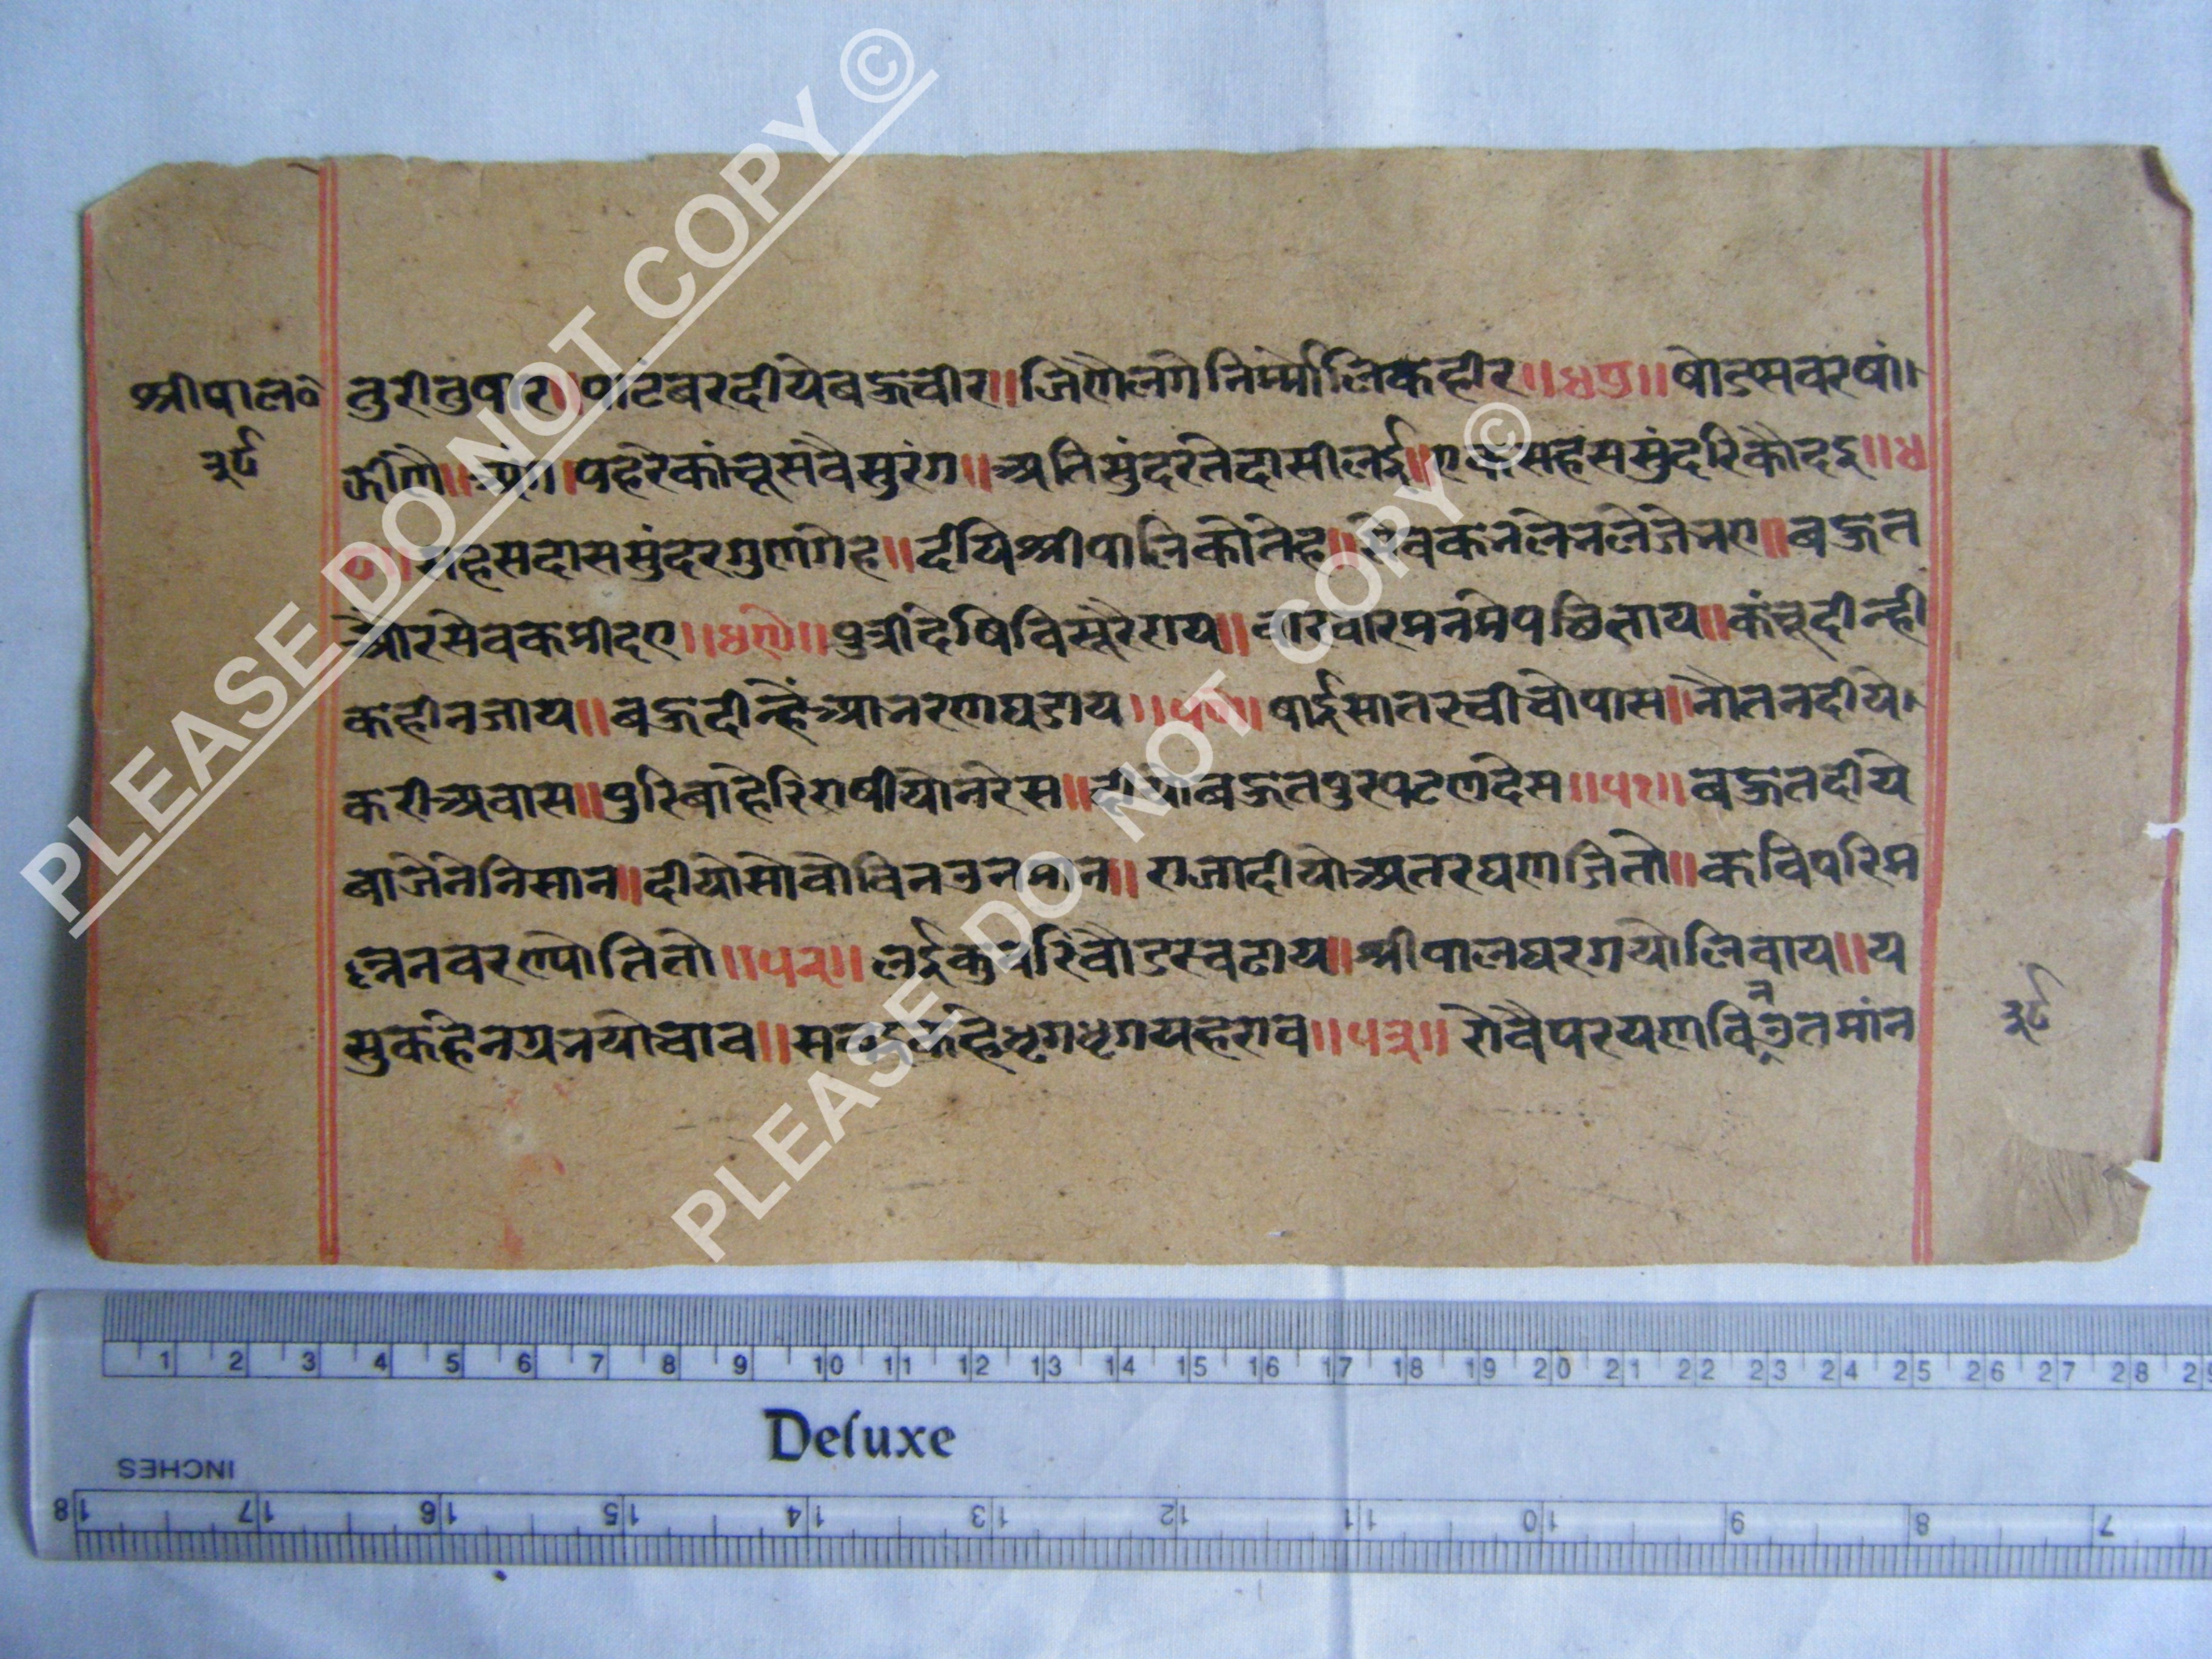 श्रीपाल॰
३८
तुरीतुषार॥पाटंबरदीयेबऊचीर॥जिणैलगेनिर्म्मोलिकहीर॥४७॥षोडसवरषां।
ऊीणै॥अंग।पहरेकांचूसवैसुरंग॥अतिसुंदरतेदासीलई॥सहंससुंदरिकौदइ॥४
॥सहसदाससुंदरगुणगेह॥दीयेश्रीपालिकौतेह॥सेवकनलेनलेजेनए॥बऊत
औरसेवकमीदए॥४९॥पुत्रीदेषिविसूरैराय॥वारवारमनमेपछिताय॥कंचूदीन्ही
कहीनजाय॥बऊदीन्हेंआनरणघडाय॥५०॥षाईसातरचीचौपास॥नौतनदीये।
करीअवास॥पुरिबाहेरिराषीयोनरेस॥दीयोबऊतपुरपटणदेस॥५१॥बऊतदीये
बाजेनेनिसान॥दीयोसोवोविनउनमान॥राजादीयोअतरघणाजितो॥कविपरिम
लनवरण्योतितो॥५२॥लईकुवरिचौडस्वढाय॥श्रीपालघरगयोलिवाय॥य
सुकहेनग्रनयोचाव॥सबकहेधृगधृगयहराव॥५३॥रोवैपरयणविनउतमांन
३८
PLEASE DO NOT COPY ©
PLEASE DO NOT COPY ©
1 2 3 4 5 6 7 8 9 10 11 12 13 14 15 16 17 18 19 20 21 22 23 24 25 26 27 28
Deluxe
INCHES
18 17 16 15 14 13 12 11 10 9 8 7